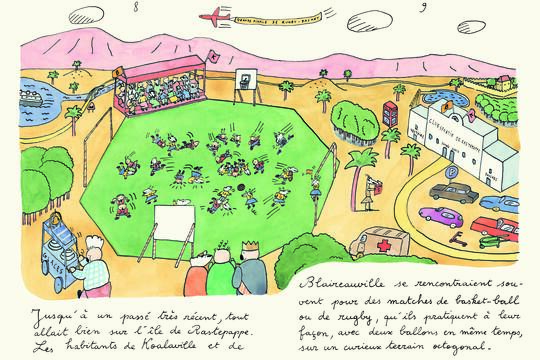 8
9
GRANDE FINALE DE RUGBY-BASKET
GLACES
Jusqu'à un passé très récent, tout
allait bien sur l'île de Rastepappe.
Les habitants de Koalaville et de
Blaireauville se rencontraient sou-
vent pour des matches de basket-ball
ou de rugby, qu'ils pratiquent à leur
façon, avec deux ballons en même temps,
sur un curieux terrain octogonal.